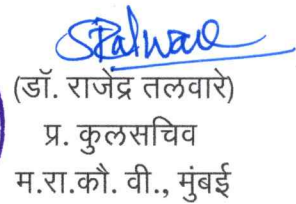 (डॉ. राजेंद्र तलवारे)
प्र. कुलसचिव
म.रा.कौ. वी., मुंबई